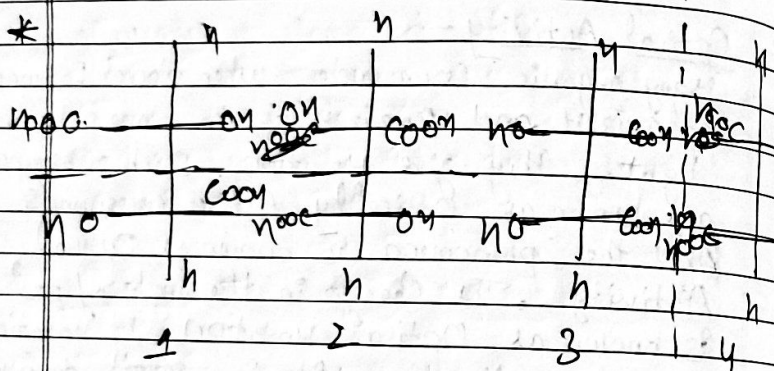 * H H H H
HOOC OH OH COOH HO COOH HOOC
HO COOH HOOC OH HO COOH HOOC
H H H H
1 2 3 4